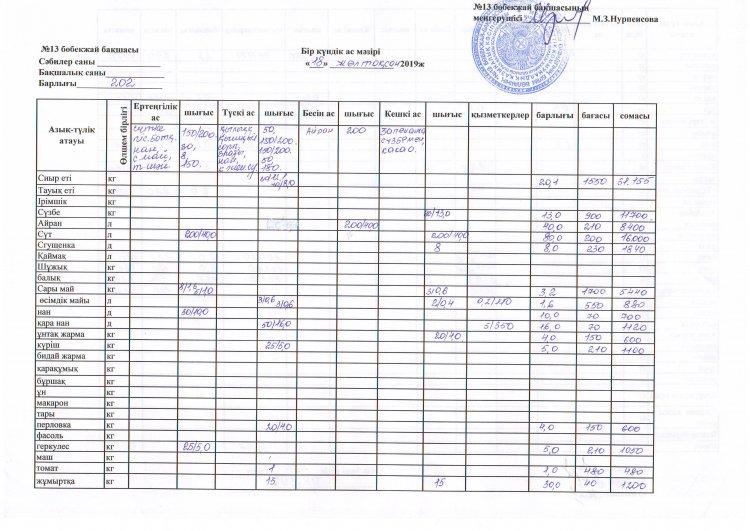 №13 бөбекжай бақшасының
меңгерушісі М.З.Нурпеисова
№13 бөбекжай бақшасы
Сәбилер саны
Бақшалық саны
Барлығы 202
Бір күндік ас мәзірі
«18» желтоқсан 2019ж
Азық-түлік атауы Өлшем бірлігі Ертеңгілік ас шығыс Түскі ас шығыс Бесін ас шығыс Кешкі ас шығыс қызметкерлер барлығы бағасы сомасы
150/200. 50, 150/200. Айран 200 Запеканка какао.
Сиыр еті кг 20,1 1550 31.155
Тауық еті кг
Ірімшік кг
Сүзбе кг 13,0 900 11700
Айран л 200/400 40,0 210 8400
Сүт л 200/400 200/400 80,0 200 16.000
Сгушенка л 8 8,0 230 1840
Қаймақ л
Шұжық кг
балық кг
Сары май кг 3/0,6 3,2 1700 5440
өсімдік майы л 3/0,6 2/0,4 1,6 550 880
нан д 10,0 70 700
қара нан д 50/16,0 5/350 16,0 70 1120
ұнтақ жарма кг 20/4,0 4,0 150 600
күріш кг 25/5,0 5,0 210 1100
бидай жарма кг
қарақұмық кг
бұршақ кг
ұн кг
макарон кг
тары кг
перловка кг 20/4,0 4,0 150 600
фасоль кг
геркулес кг 25/5,0 5,0 210 1050
маш кг
томат кг 1 1,0 480 480
жұмыртқа кг 15 15 30,0 40 1200